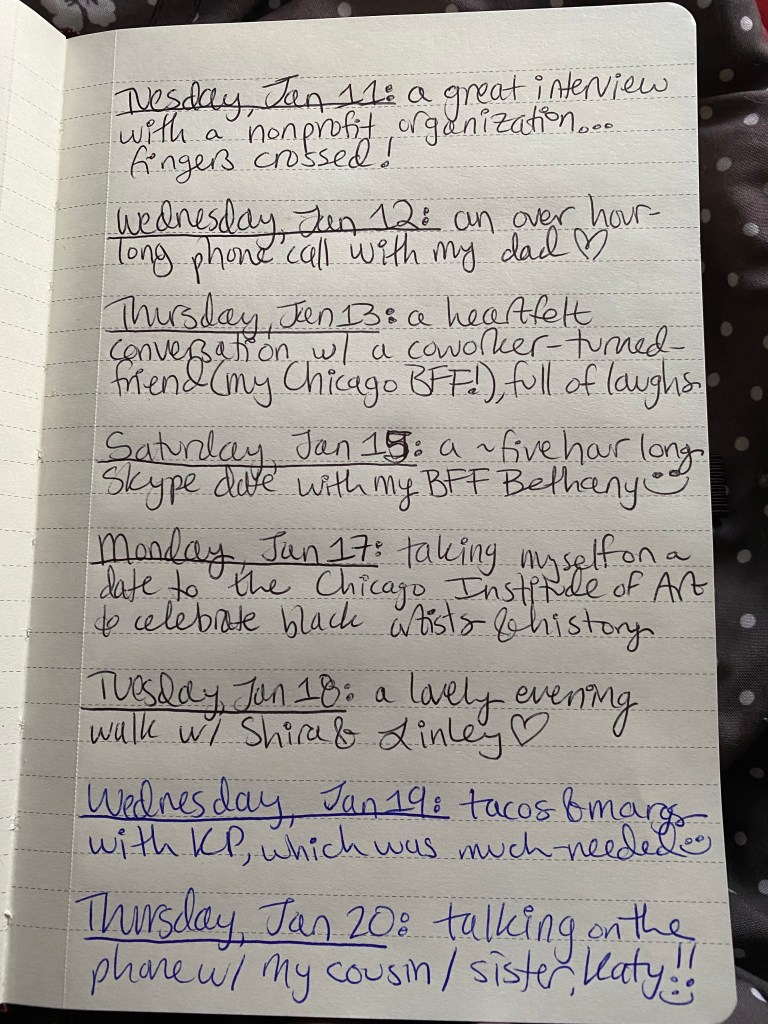 Tuesday, Jan 11: a great interview
with a nonprofit organization...
fingers crossed!
Wednesday, Jan 12: an over hour-
long phone call with my dad ♡
Thursday, Jan 13: a heartfelt
conversation w/ a coworker-turned-
friend (my Chicago BFF!), full of laughs
Saturday, Jan 15: a ~five hour long
Skype date with my BFF Bethany :)
Monday, Jan 17: taking myself on a
date to the Chicago Institute of Art
to celebrate black artists & history
Tuesday, Jan 18: a lovely evening
walk w/ Shira & Linley ♡
Wednesday, Jan 19: tacos & margs
with KP, which was much-needed :)
Thursday, Jan 20: talking on the
phone w/ my cousin/sister, Katy!! :)